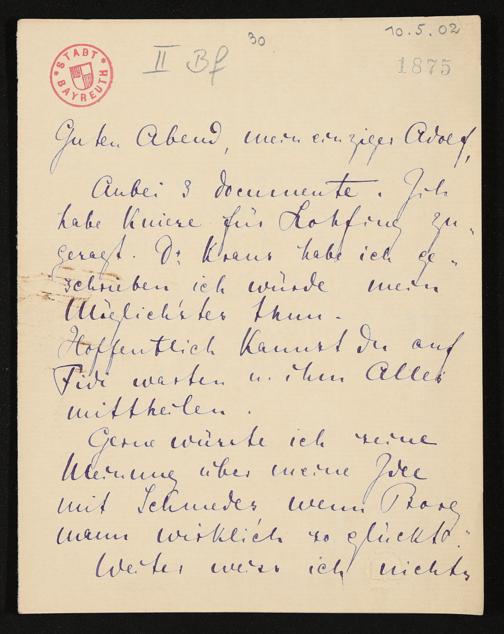 10.5.02
30
II Bf
1875
STADT BAYREUTH
Guten Abend, mein einziger Adolf,
Anbei 3 Documente. Ich
habe Kniese für Lohfing zu„
gesagt. Dr Kraus habe ich ge„
schrieben ich würde mein
Möglichstes thun.
Hoffentlich kannst Du auf
Fidi warten u. ihm Alles
mittheilen.
Gerne wüsste ich seine
Meinung über meine Idee
mit Schmedes wenn
mann wirklich so glückte.
Weiter weiss ich nichts